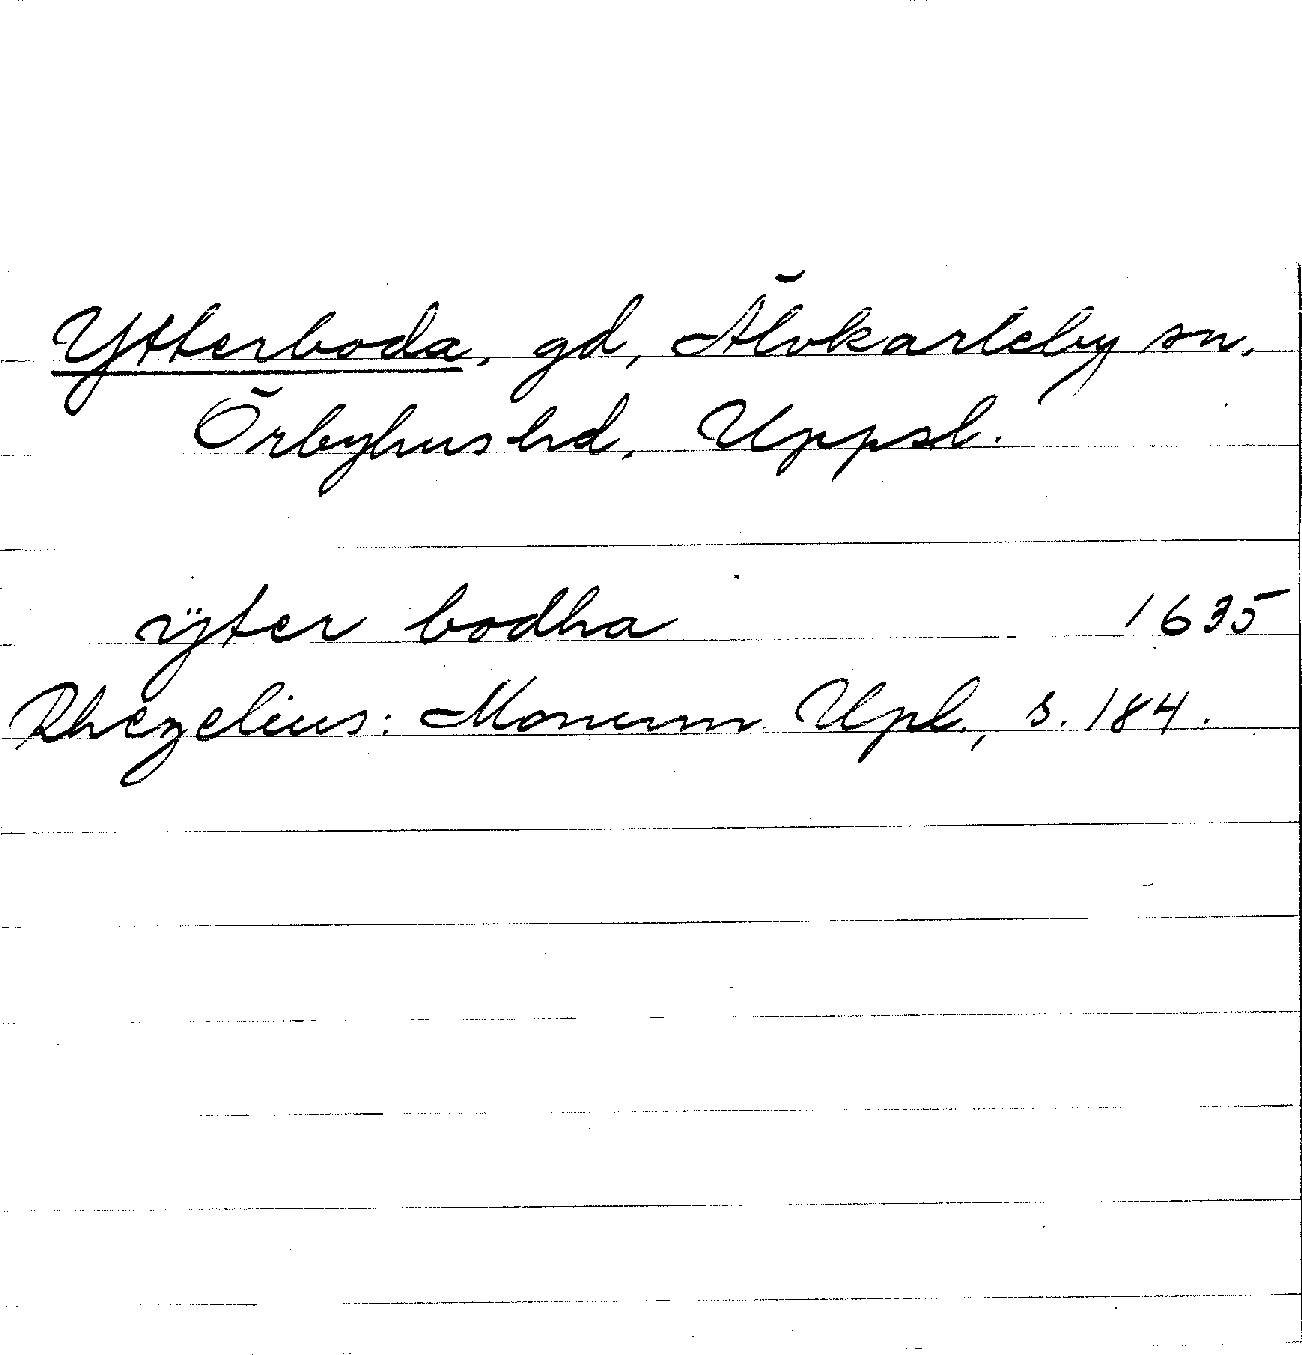 Ytterboda, gd, Älvkarleby sn,
Örbyhus hd, Uppsl.
ÿter bodha 1635
Rhezelius: Monum. Upl., s. 184.